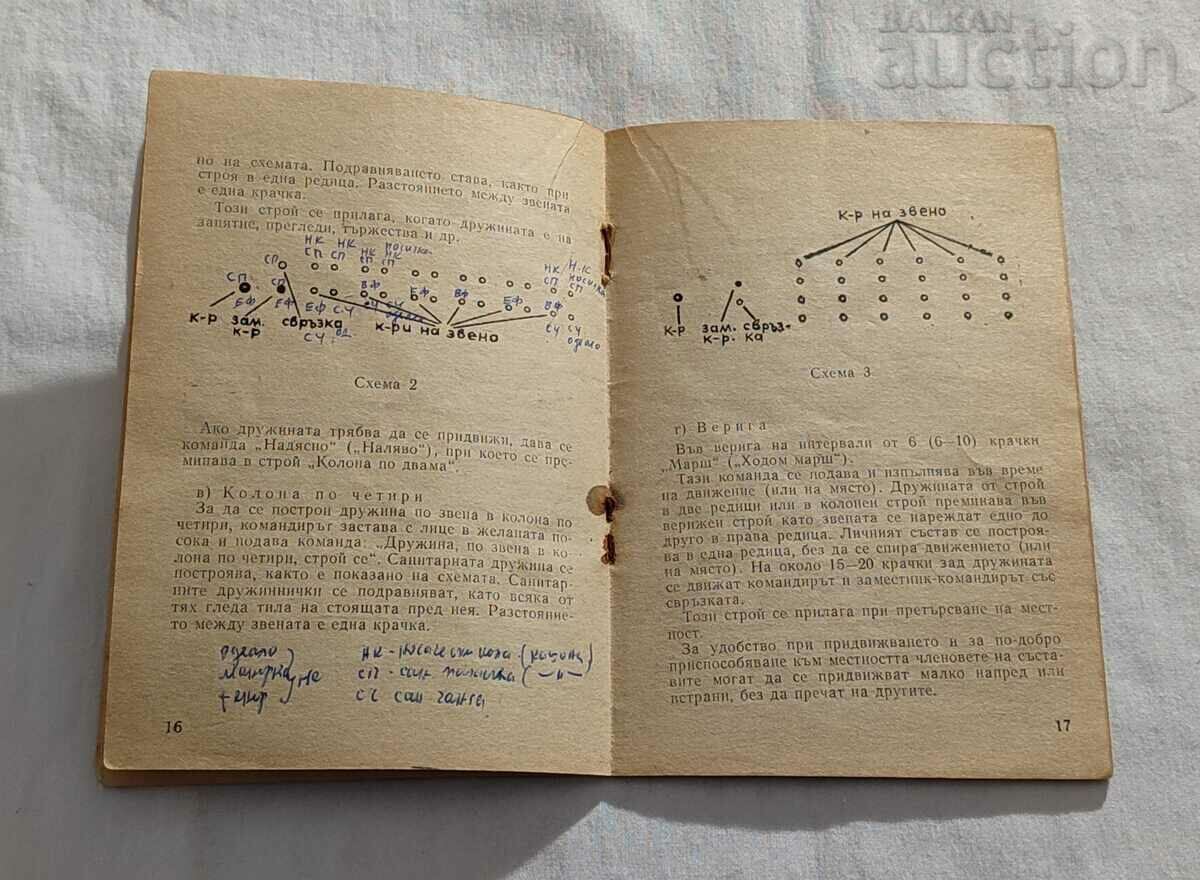 BALKAN
auction
но на схемата. Подравняването става, както при
строя в една редица. Разстоянието между звената
е една крачка.
Този строй се прилага, когато дружината е на
занятие, прегледи, тържества и др.
НК НК носилка
СП СП НК НК
СП СП
НК Н.К
СП носилка
СП
СП СП
ЕФ ЕФ ЕФ СЧ ВФ ЕФ ВФ ЕФ ВФ
СЧ СЧ
одеяло
к-р зам. свръзка к-ри на звено
к-р
СЧ од
СЧ СЧ
одеяло
Схема 2
Ако дружината трябва да се придвижи, дава се
команда „Надясно“ („Наляво“), при което се пре-
минава в строй „Колона по двама“.
в) Колона по четири
За да се построи дружина по звена в колона по
четири, командирът застава с лице в желаната по-
сока и подава команда: „Дружина, по звена в ко-
лона по четири, строй се“. Санитарната дружина се
построява, както е показано на схемата. Санитар-
ните дружиннички се подравняват, като всяка от
тях гледа тила на стоящата пред нея. Разстояние-
то между звената е една крачка.
одеяло
манерка не
НК - носачески
СП - сан
СС сан чанта
16
к-р на звено
к-р зам. свръз-
к-р. ка
Схема 3
г) Верига
Във верига на интервали от 6 (6—10) крачки
„Марш“ („Ходом марш“).
Тази команда се подава и изпълнява във време
на движение (или на място). Дружината от строй
в две редици или в колонен строй преминава във
верижен строй като звената се нареждат едно до
друго в права редица. Личният състав се построя-
ва в една редица, без да се спира движението (или
на място). На около 15—20 крачки зад дружината
се движат командирът и заместник-командирът със
свръзката.
Този строй се прилага при претърсване на мест-
ност.
За удобство при придвижването и за по-добро
приспособяване към местността членовете на съста-
вите могат да се придвижват малко напред или
встрани, без да пречат на другите.
17